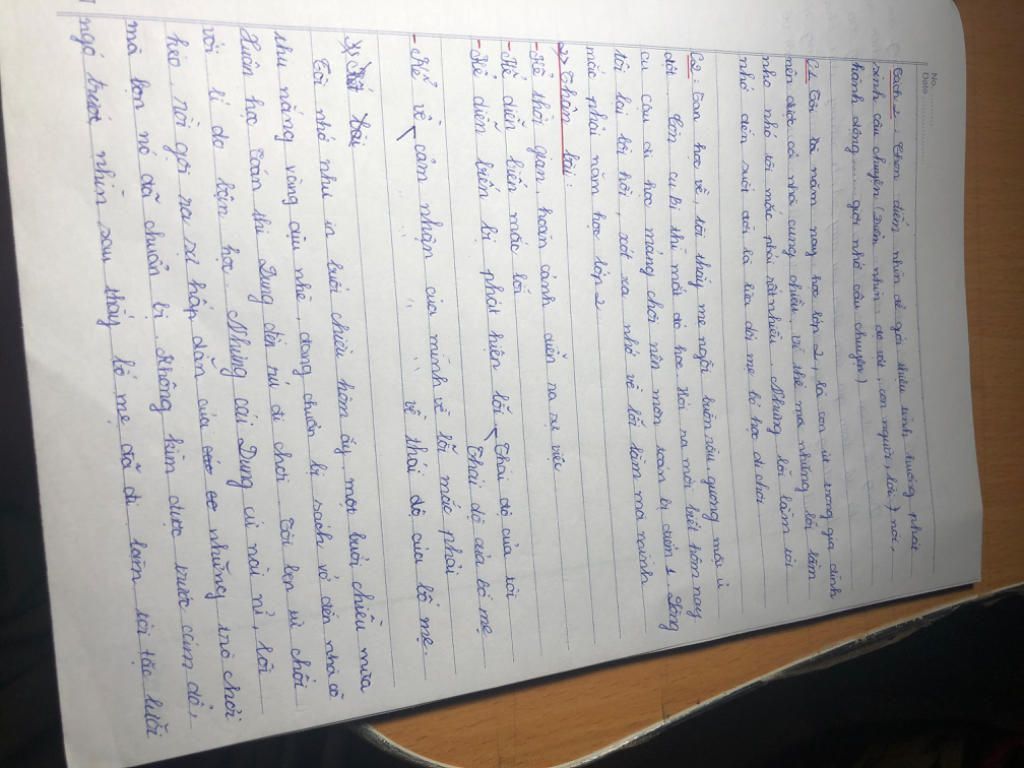 No.
Date
Cách 2: Chọn điểm nhìn để giới thiệu tình huống phát
sinh câu chuyện (điểm nhìn: đồ vật, con người, lời nói,
hành động..... gợi nhớ câu chuyện)
C1 Tôi là năm nay học lớp 2, là con út trong gia đình
nên được cả nhà cưng chiều, vì thế mà những lỗi lầm
nho nhỏ tôi mắc phải rất nhiều. Nhưng lỗi lầm tôi
nhớ đến suốt đời là lần dối mẹ bỏ học đi chơi
C2 Tan học về, tôi thấy mẹ ngồi buồn rầu, gương mặt ủ
dột. Còn cu Bi thì mất đó học. Hỏi ra mới biết hôm nay
cu cậu đi học mảng chơi nên môn toán bị điểm 1. Lòng
tôi lại bồi hồi, xót xa nhớ về lỗi lầm mà mình
mắc phải năm học lớp 2
2) Thân bài:
- Kể thời gian, hoàn cảnh diễn ra sự việc
- Kể diễn biến mắc lỗi
- Kể diễn biến bị phát hiện lỗi - Thái độ của tôi
Thái độ của bố mẹ
- Kể về cảm nhận của mình về lỗi mắc phải
" " " về thái độ của bố mẹ
Tôi nhớ như in buổi chiều hôm ấy, một buổi chiều mùa
thu nắng vàng dịu nhẹ, đang chuẩn bị sách vở đến nhà cô
Huấn học toán thì Dung đến rủ đi chơi. Tôi liền từ chối
với lí do bận học. Nhưng cái Dung cứ nài nỉ, lôi
kéo rồi gợi ra sự hấp dẫn của những trò chơi
mà bọn nó đã chuẩn bị. Không kìm được trước cám dỗ,
ngó trước nhìn sau thấy bố mẹ đã đi làm tôi tặc lưỡi